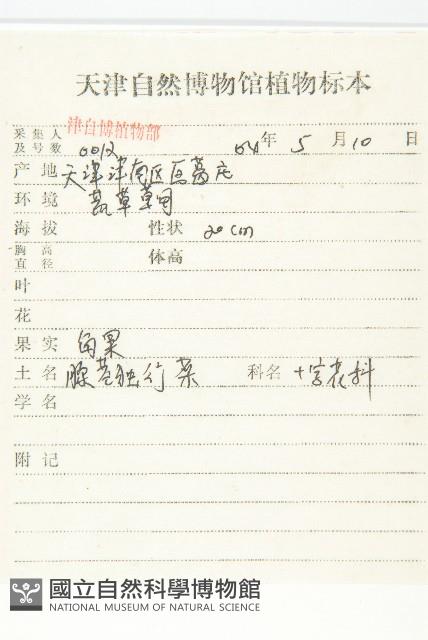 天津自然博物馆植物标本
采集人及号数 津自博植物部 0012 64年 5月10日
产地 天津津南区巨葛庄
环境 荒草草甸
海拔 性状 20cm
胸高直径 体高
叶
花
果实 角果
土名 腺茎独行菜 科名 十字花科
学名
附记
國立自然科學博物館
NATIONAL MUSEUM OF NATURAL SCIENCE